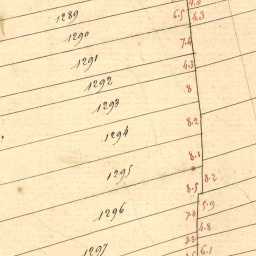 1289
6.5
6.3
1290
7.4
1291
4.3
1292
8
1293
8.2
1294
1295
8.2
8.5
1296
5.9
4.8
1297
6.1